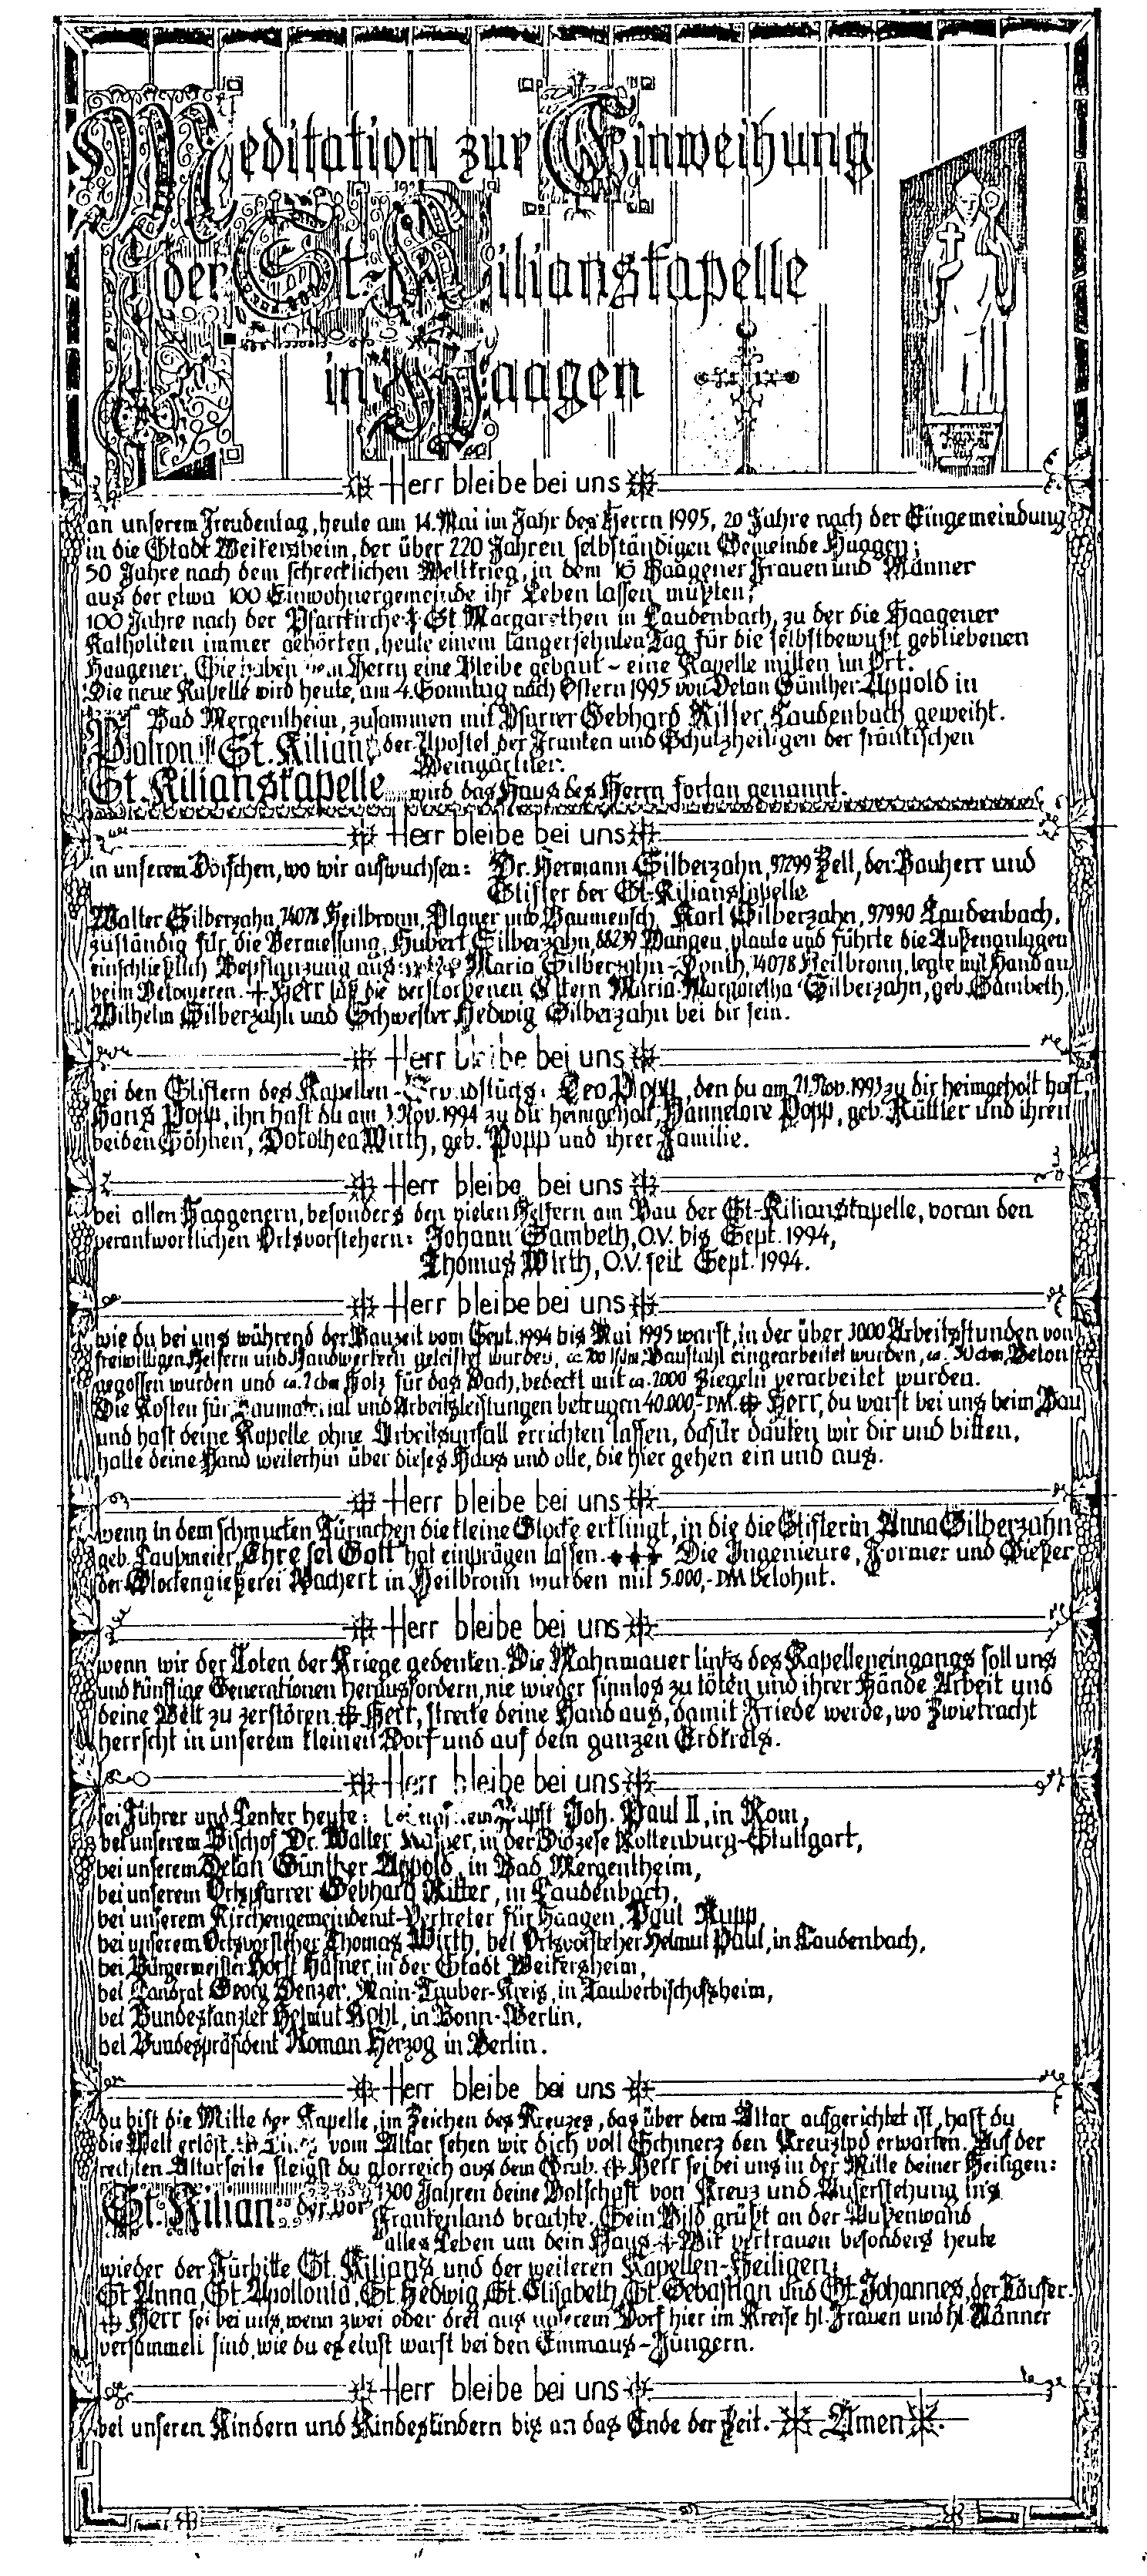 Meditation zur Einweihung
der St.-Kilianskapelle
in Haagen
Herr bleibe bei uns
an unserem Freudentag, heute am 14. Mai im Jahr des Herrn 1995, 20 Jahre nach der Eingemeindung
in die Stadt Weikersheim, der über 220 Jahren selbständigen Gemeinde Haagen;
50 Jahre nach dem schrecklichen Weltkrieg, in dem 16 Haagener Frauen und Männer
aus der etwa 100 Einwohnergemeinde ihr Leben lassen mußten;
100 Jahre nach der Pfarrkirche St. Margarethen in Laudenbach, zu der die Haagener
Katholiken immer gehörten, heute einem langersehnten Tag für die selbstbewußt gebliebenen
Haagener. Sie haben dem Herrn eine Bleibe gebaut - eine Kapelle mitten im Ort.
Die neue Kapelle wird heute, am 4. Sonntag nach Ostern 1995 von Dekan Günther Appold in
Bad Mergentheim, zusammen mit Pfarrer Gebhard Ritter, Laudenbach geweiht.
Patron ist St. Kilian, der Apostel der Franken und Schutzheiligen der fränkischen
Weingärtner.
St. Kilianskapelle wird das Haus des Herrn fortan genannt.
Herr bleibe bei uns
in unserem Dörfchen, wo wir aufwuchsen: Dr. Hermann Silberzahn, 97299 Zell, der Bauherr und
Stifter der St.-Kilianskapelle
Walter Silberzahn, 74078 Heilbronn, Planer und Baumensch, Karl Silberzahn, 97990 Laudenbach,
zuständig für die Vermessung, Hubert Silberzahn, 88239 Wangen, plante und führte die Außenanlagen
einschließlich Bepflanzung aus Maria Silberzahn-Ponth, 74078 Heilbronn, legte mit Hand an
beim Betonieren. Herr laß die verstorbenen Eltern Maria-Margaretha Silberzahn, geb. Sambeth,
Wilhelm Silberzahn und Schwester Hedwig Silberzahn bei dir sein.
Herr bleibe bei uns
bei den Stiftern des Kapellen-Grundstücks: Leo Popp, den du am 21. Nov. 1993 zu dir heimgeholt hast
Hans Popp, ihn hast du am 3. Nov. 1994 zu dir heimgeholt, Hannelore Popp, geb. Rüttler und ihren
beiden Söhnen, Dorothea Wirth, geb. Popp und ihrer Familie.
Herr bleibe bei uns
bei allen Haagenern, besonders den vielen Helfern am Bau der St-Kilianskapelle, voran den
verantwortlichen Ortsvorstehern: Johann Sambeth, O.V. bis Sept. 1994,
Thomas Wirth, O.V. seit Sept. 1994.
Herr bleibe bei uns
wie du bei uns während der Bauzeit vom Sept. 1994 bis Mai 1995 warst, in der über 3000 Arbeitsstunden von
freiwilligen Helfern und Handwerkern geleistet wurden, Baustahl eingearbeitet wurden, ca. 30 cbm Beton
gegossen wurden und ca. 2 cbm Holz für das Dach, bedeckt mit ca. 2000 Ziegeln verarbeitet wurden.
Die Kosten für Baumaterial und Arbeitsleistungen betrugen 40.000,- DM. Herr, du warst bei uns beim Bau
und hast deine Kapelle ohne Arbeitsunfall errichten lassen, dafür danken wir dir und bitten,
halte deine Hand weiterhin über dieses Haus und alle, die hier gehen ein und aus.
Herr bleibe bei uns
wenn in dem schmucken Türmchen die kleine Glocke erklingt, in die die Stifterin Anna Silberzahn
geb. Laubmeier, "Ehre sei Gott" hat einprägen lassen. Die Ingenieure, Former und Gießer
der Glockengießerei Bachert in Heilbronn wurden mit 5.000,- DM belohnt.
Herr bleibe bei uns
wenn wir der Toten der Kriege gedenken. Die Mahnmauer links des Kapelleneingangs soll uns
und künftige Generationen herausfordern, nie wieder sinnlos zu töten und ihrer Hände Arbeit und
deine Welt zu zerstören. Herr, strecke deine Hand aus, damit Friede werde, wo Zwietracht
herrscht in unserem kleinen Dorf und auf dem ganzen Erdkreis.
Herr bleibe bei uns
sei Führer und Lenker heute: bei unserem Papst Joh. Paul II, in Rom,
bei unserem Bischof Dr. Walter Kasper, in der Diözese Rottenburg-Stuttgart,
bei unserem Dekan Günther Appold, in Bad Mergentheim,
bei unserem Ortspfarrer Gebhard Ritter, in Laudenbach,
bei unserem Kirchengemeinderat-Vertreter für Haagen, Paul Rupp
bei unserem Ortsvorsteher Thomas Wirth, bei Ortsvorsteher Helmut Paul, in Laudenbach,
bei Bürgermeister Horst Häfner, in der Stadt Weikersheim,
bei Landrat Georg Denzer, Main-Tauber-Kreis, in Tauberbischofsheim,
bei Bundeskanzler Helmut Kohl, in Bonn-Berlin,
bei Bundespräsident Roman Herzog in Berlin.
Herr bleibe bei uns
du bist die Mitte der Kapelle, im Zeichen des Kreuzes, das über dem Altar aufgerichtet ist, hast du
die Welt erlöst. Links vom Altar sehen wir dich voll Schmerz den Kreuztod erwarten. Auf der
rechten Altarseite steigst du glorreich aus dem Grab. Herr sei bei uns in der Mitte deiner Heiligen:
St. Kilian der vor 1300 Jahren deine Botschaft von Kreuz und Auferstehung ins
Frankenland brachte. Sein Bild grüßt an der Außenwand
alles Leben um dein Haus. Wir vertrauen besonders heute
wieder der Fürbitte St. Kilians und der weiteren Kapellen-Heiligen:
St. Anna, St. Apollonia, St. Hedwig, St. Elisabeth, St. Sebastian und St. Johannes, der Täufer.
Herr sei bei uns, wenn zwei oder drei aus unserem Dorf hier im Kreise hl. Frauen und hl. Männer
versammelt sind, wie du es einst warst bei den Emmaus-Jüngern.
Herr bleibe bei uns
bei unseren Kindern und Kindeskindern bis an das Ende der Zeit. Amen.